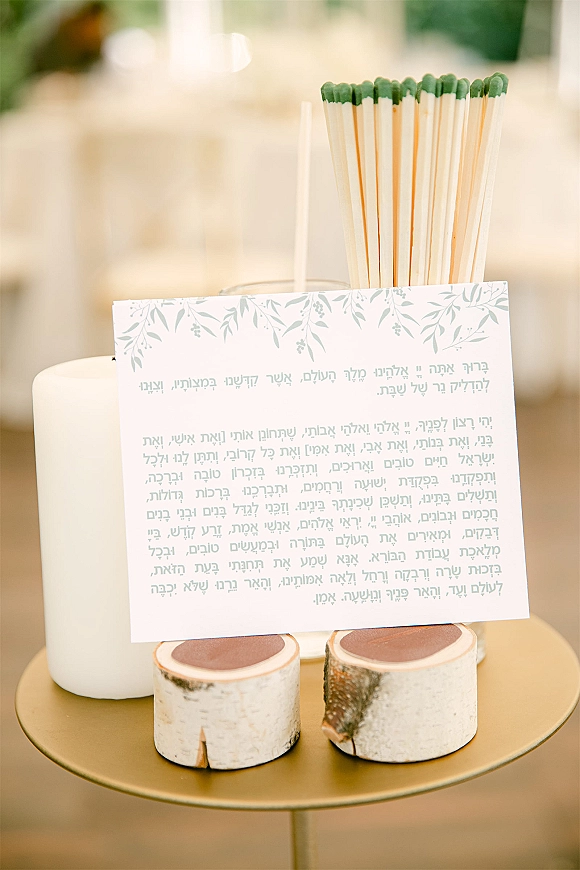 בָּרוּךְ אַתָּה יְיָ אֱלֹהֵינוּ מֶלֶךְ הָעוֹלָם, אֲשֶׁר קִדְּשָׁנוּ בְּמִצְוֹתָיו, וְצִוָּנוּ
לְהַדְלִיק נֵר שֶׁל שַׁבָּת.
יְהִי רָצוֹן לְפָנֶיךָ, יְיָ אֱלֹהַי וֵאלֹהֵי אֲבוֹתַי, שֶׁתְּחוֹנֵן אוֹתִי [וְאֶת אִישִׁי, וְאֶת
בָּנַי, וְאֶת בְּנוֹתַי, וְאֶת אָבִי, וְאֶת אִמִּי] וְאֶת כָּל קְרוֹבַי, וְתִתֶּן לָנוּ וּלְכָל
יִשְׂרָאֵל חַיִּים טוֹבִים וַאֲרוּכִים, וְתִזְכְּרֵנוּ בְּזִכְרוֹן טוֹבָה וּבְרָכָה,
וְתִפְקְדֵנוּ בִּפְקֻדַּת יְשׁוּעָה וְרַחֲמִים, וּתְבָרְכֵנוּ בְּרָכוֹת גְּדוֹלוֹת,
וְתַשְׁלִים בָּתֵּינוּ, וְתַשְׁכֵּן שְׁכִינָתְךָ בֵּינֵינוּ. וְזַכֵּנִי לְגַדֵּל בָּנִים וּבְנֵי בָנִים
חֲכָמִים וּנְבוֹנִים, אוֹהֲבֵי יְיָ, יִרְאֵי אֱלֹהִים, אַנְשֵׁי אֱמֶת, זֶרַע קֹדֶשׁ, בַּיְיָ
דְּבֵקִים, וּמְאִירִים אֶת הָעוֹלָם בַּתּוֹרָה וּבְמַעֲשִׂים טוֹבִים, וּבְכָל
מְלֶאכֶת עֲבוֹדַת הַבּוֹרֵא. אָנָּא שְׁמַע אֶת תְּחִנָּתִי בָּעֵת הַזֹּאת,
בִּזְכוּת שָׂרָה וְרִבְקָה וְרָחֵל וְלֵאָה אִמּוֹתֵינוּ, וְהָאֵר נֵרֵנוּ שֶׁלֹּא יִכְבֶּה
לְעוֹלָם וָעֶד, וְהָאֵר פָּנֶיךָ וְנִוָּשֵׁעָה. אָמֵן.